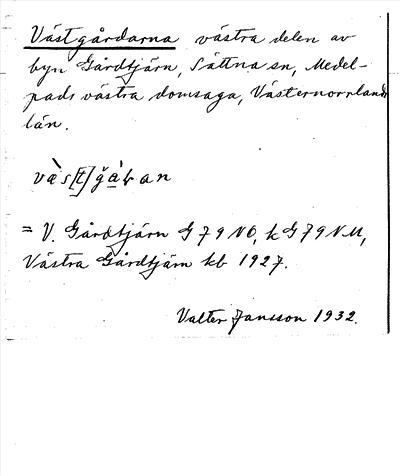 Västgårdarna västra delen av
byn Gårdtjärn, Sättna sn, Medel-
pads västra domsaga, Västernorrlands
län.
= V. Gårdtjärn G 79 NÖ, k G 79 NM,
Västra Gårdtjärn kb 1927.
Valter Jansson 1932.